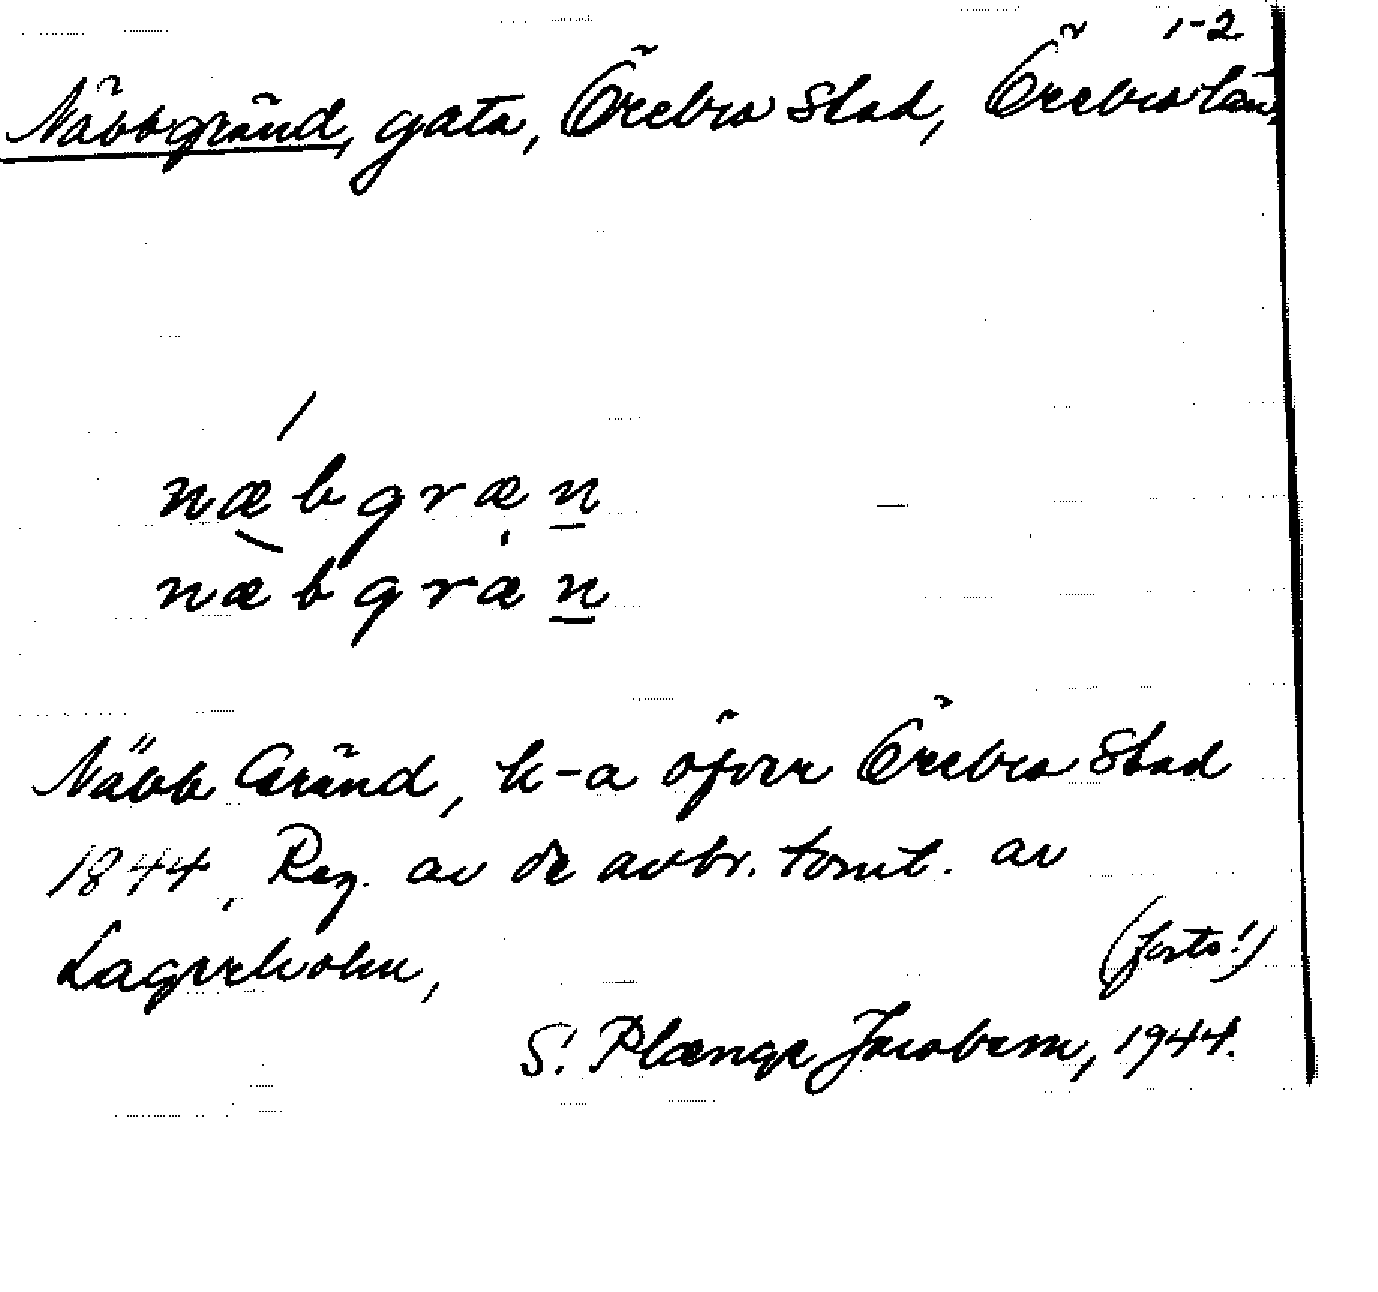 1-2
Näbbgränd, gata, Örebro stad, Örebro län,
næbgræn
næbgræn
Näbb Gränd, k-a öfver Örebro Stad
1844, Reg. av de avbr. tomt. av
Lagerholm,
(forts!)
S. Plænge Jacobson, 1944.